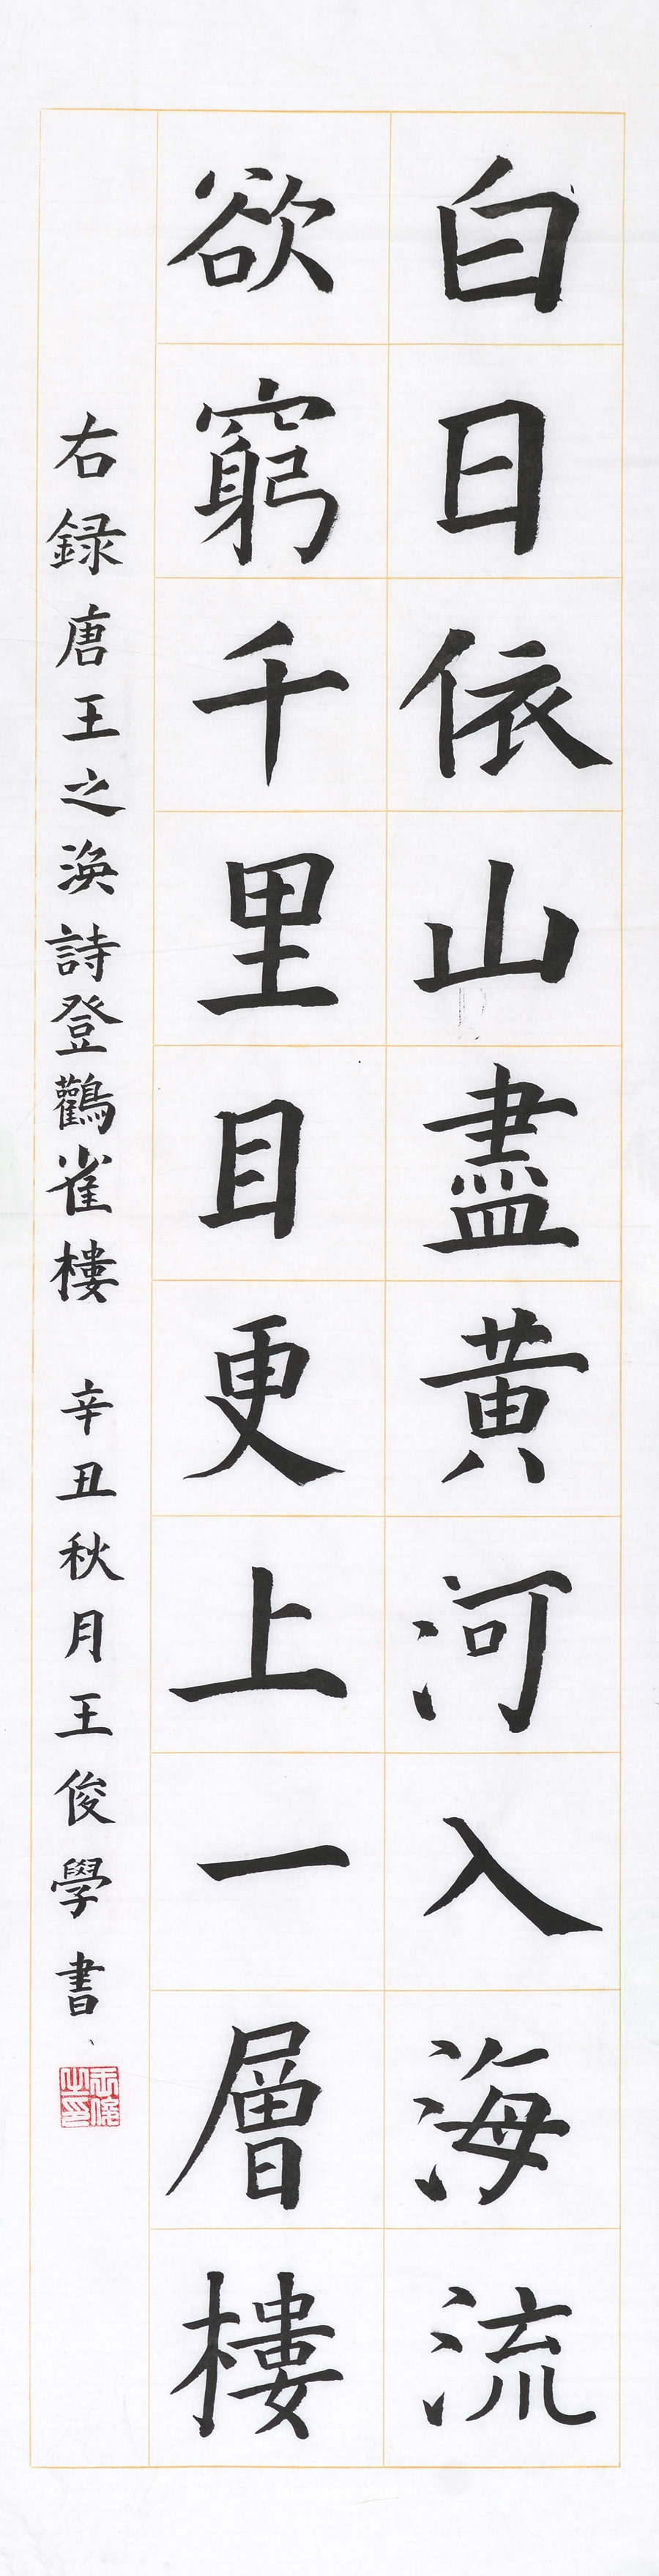 白日依山盡黄河入海流
欲窮千里目更上一層樓
右録唐王之渙詩登鸛雀樓 辛丑秋月王俊學書
王俊之印